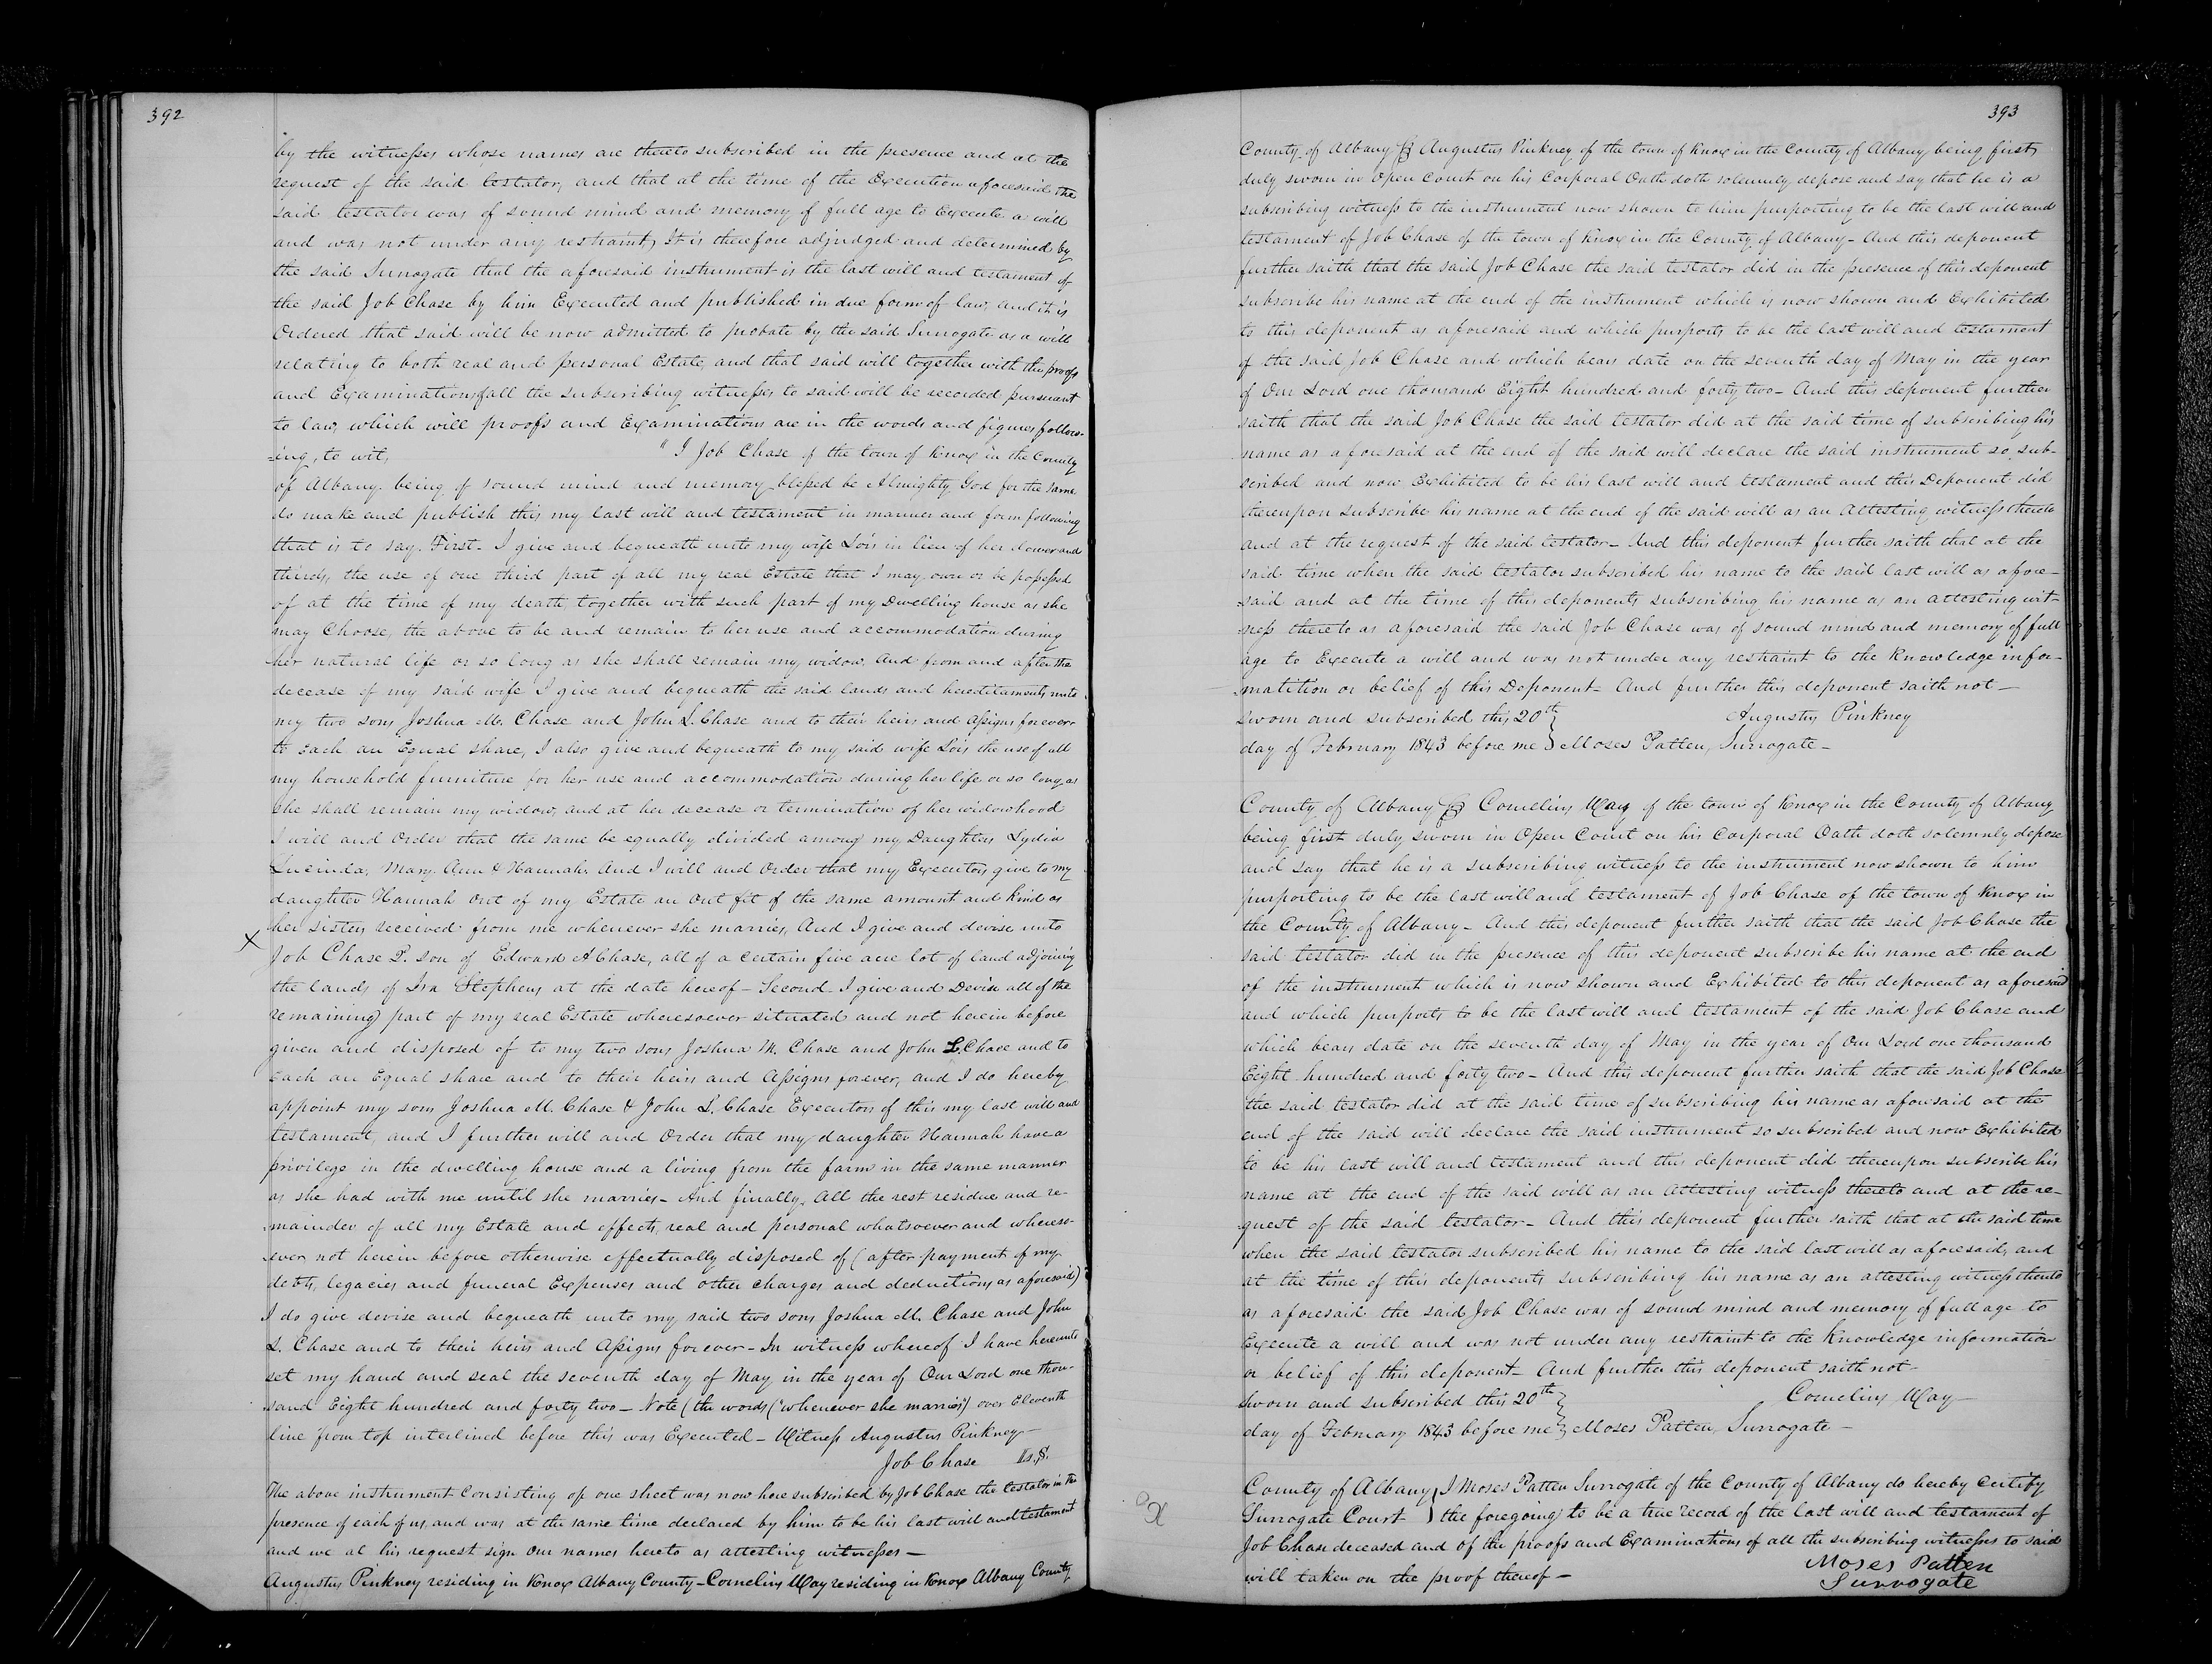 392
by the witnesses whose names are thereto subscribed in the presence and at the
request of the said testator, and that at the time of the Execution aforesaid the
said testator was of sound mind and memory of full age to Execute a will
and was not under any restraint, It is therefore adjudged and determined by
the said Surrogate that the aforesaid instrument is the last will and testament of
the said Job Chase by him Executed and published in due form of law, and it is
Ordered that said will be now admitted to probate by the said Surrogate as a will
relating to both real and personal Estate, and that said will together with the proofs
and Examinations of all the subscribing witnesses to said will be recorded pursuant
to law, which will proofs and Examinations are in the words and figures follow-
=ing, to wit, "I Job Chase of the town of Knox in the County
of Albany being of sound mind and memory blessed be Almighty God for the same
do make and publish this my last will and testament in manner and form following
that is to say. First- I give and bequeath unto my wife Lois in lieu of her dower and
thirds, the use of one third part of all my real Estate that I may own or be possessed
of at the time of my death, together with such part of my Dwelling house as she
may Choose, the above to be and remain to her use and accommodation during
her natural life or so long as she shall remain my widow. And from and after the
decease of my said wife I give and bequeath the said lands and hereditaments unto
my two sons Joshua M. Chase and John L. Chase and to their heirs and Assigns forever
to Each an Equal share, I also give and bequeath to my said wife Lois the use of all
my household furniture for her use and accommodation during her life or so long as
she shall remain my widow, and at her decease or termination of her widowhood
I will and Order that the same be equally divided among my Daughters Lydia
Lucinda, Mary Ann & Hannah. And I will and Order that my Executors give to my
daughter Hannah out of my Estate an out fit of the same amount and kind as
her sisters received from me whenever she marries, And I give and devise unto
X Job Chase P. son of Edward A Chase, all of a certain five acre lot of land adjoining
the lands of Ira Stephens at the date hereof - Second. I give and Devise all of the
remaining part of my real Estate wheresoever situated and not herein before
given and disposed of to my two sons Joshua M. Chase and John L. Chase and to
Each an Equal share and to their heirs and Assigns forever, and I do hereby
appoint my sons Joshua M. Chase & John L. Chase Executors of this my last will and
testament, and I further will and Order that my daughter Hannah have a
privilege in the dwelling house and a living from the farm in the same manner
as she had with me until she marries - And finally, All the rest residue and re-
mainder of all my Estate and effects, real and personal whatsoever and whereso-
ever not herein before otherwise effectually disposed of (after payment of my
debts, legacies and funeral Expenses and other charges and deductions as aforesaid)
I do give devise and bequeath unto my said two sons Joshua M. Chase and John
L. Chase and to their heirs and Assigns forever - In witness whereof I have hereunto
set my hand and seal the seventh day of May in the year of Our Lord one thou-
sand Eight hundred and forty two - Note (the words ("whenever she marries") over Eleventh
line from top interlined before this was Executed - Witness Augustus Pinkney
Job Chase L.S.
The above instrument Consisting of one sheet was now here subscribed by Job Chase the testator in the
presence of each of us, and was at the same time declared by him to be his last will and testament
and we at his request sign our names hereto as attesting witnesses -
Augustus Pinkney residing in Knox Albany County - Cornelius Way residing in Knox Albany County
393
County of Albany SS Augustus Pinkney of the town of Knox in the County of Albany being first
duly sworn in Open Court on his Corporal Oath doth solemnly depose and say that he is a
subscribing witness to the instrument now shown to him purporting to be the last will and
testament of Job Chase of the town of Knox in the County of Albany - And this deponent
further saith that the said Job Chase the said testator did in the presence of this deponent
subscribe his name at the end of the instrument which is now shown and Exhibited
to this deponent as aforesaid and which purports to be the last will and testament
of the said Job Chase and which bears date on the seventh day of May in the year
of Our Lord one thousand Eight hundred and forty two - And this deponent further
saith that the said Job Chase the said testator did at the said time of subscribing his
name as aforesaid at the end of the said will declare the said instrument so sub-
scribed and now Exhibited to be his last will and testament and this Deponent did
thereupon subscribe his name at the end of the said will as an Attesting witness thereto
and at the request of the said testator - And this deponent further saith that at the
said time when the said testator subscribed his name to the said last will as afore-
said and at the time of this deponents subscribing his name as an attesting wit-
ness thereto as aforesaid the said Job Chase was of sound mind and memory of full
age to Execute a will and was not under any restraint to the knowledge infor-
matition or belief of this Deponent - And further this deponent saith not -
Sworn and subscribed this 20th Augustus Pinkney
day of February 1843 before me Moses Patten, Surrogate -
County of Albany SS Cornelius Way of the town of Knox in the County of Albany
being first duly sworn in Open Court on his Corporal Oath doth solemnly depose
and say that he is a subscribing witness to the instrument now shown to him
purporting to be the last will and testament of Job Chase of the town of Knox in
the County of Albany - And this deponent further saith that the said Job Chase the
said testator did in the presence of this deponent subscribe his name at the end
of the instrument which is now shown and Exhibited to this deponent as aforesaid
and which purports to be the last will and testament of the said Job Chase and
which bears date on the seventh day of May in the year of Our Lord one thousand
Eight hundred and forty two - And this deponent further saith that the said Job Chase
the said testator did at the said time of subscribing his name as aforesaid at the
end of the said will declare the said instrument so subscribed and now Exhibited
to be his last will and testament and this deponent did thereupon subscribe his
name at the end of the said will as an attesting witness thereto and at the re-
quest of the said testator - And this deponent further saith that at the said time
when the said testator subscribed his name to the said last will as aforesaid, and
at the time of this deponents subscribing his name as an attesting witness thereto
as aforesaid the said Job Chase was of sound mind and memory of full age to
Execute a will and was not under any restraint to the knowledge information
or belief of this deponent - And further this deponent saith not -
Sworn and subscribed this 20th Cornelius Way
day of February 1843 before me Moses Patten, Surrogate -
County of Albany I Moses Patten Surrogate of the County of Albany do hereby Certify
Surrogate Court the foregoing to be a true record of the last will and testament of
Job Chase deceased and of the proofs and Examinations of all the subscribing witnesses to said
will taken on the proof thereof - Moses Patten
Surrogate